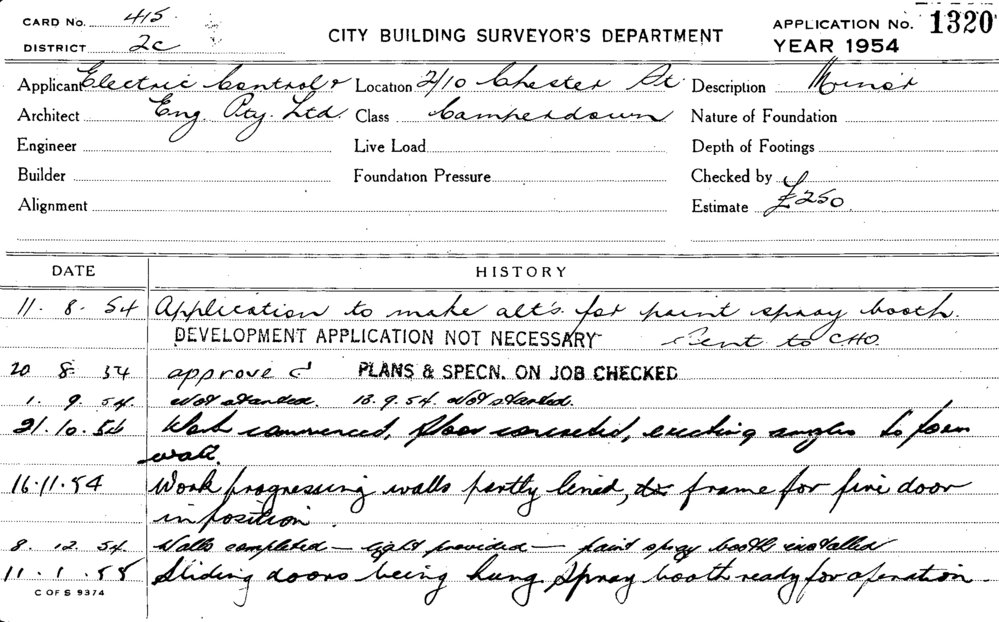 CARD No. 415
DISTRICT 2c
CITY BUILDING SURVEYOR'S DEPARTMENT
APPLICATION No. 1320
YEAR 1954
Applicant Electric Control & Location 2/10 Chester St Description Minor
Architect Eng. Pty. Ltd Class Camperdown Nature of Foundation
Engineer Live Load Depth of Footings
Builder Foundation Pressure Checked by
Alignment Estimate £250
DATE HISTORY
11. 8. 54 Application to make alt's. for paint spray booth.
DEVELOPMENT APPLICATION NOT NECESSARY Sent to CHO.
20 8. 54 approved PLANS & SPECN. ON JOB CHECKED
1. 9. 54. Not started. 13. 9. 54. Not started.
21. 10. 54 Work commenced, floor concreted, erecting angles to form
wall.
16. 11. 54 Work progressing walls partly lined, frame for fire door
in position
8. 12. 54. Walls completed — light provided — paint spray booth installed
11. 1. 55 Sliding doors being hung. Spray booth ready for operation
C OF S 9374